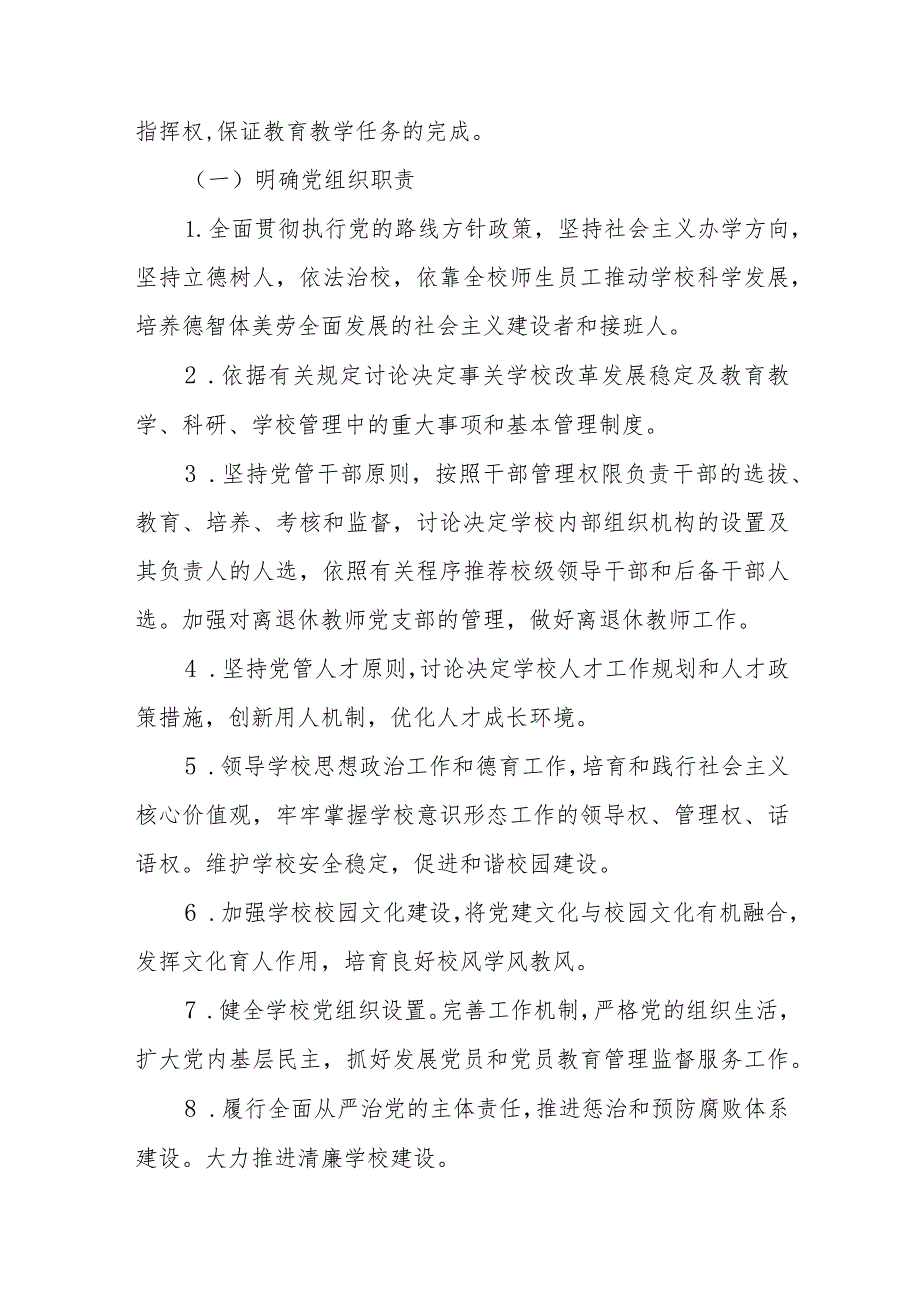 指挥权,保证教育教学任务的完成。
（一）明确党组织职责
1.全面贯彻执行党的路线方针政策，坚持社会主义办学方向，
坚持立德树人，依法治校，依靠全校师生员工推动学校科学发展，
培养德智体美劳全面发展的社会主义建设者和接班人。
2.依据有关规定讨论决定事关学校改革发展稳定及教育教
学、科研、学校管理中的重大事项和基本管理制度。
3.坚持党管干部原则，按照干部管理权限负责干部的选拔、
教育、培养、考核和监督，讨论决定学校内部组织机构的设置及
其负责人的人选，依照有关程序推荐校级领导干部和后备干部人
选。加强对离退休教师党支部的管理，做好离退休教师工作。
4.坚持党管人才原则,讨论决定学校人才工作规划和人才政
策措施，创新用人机制，优化人才成长环境。
5.领导学校思想政治工作和德育工作,培育和践行社会主义
核心价值观，牢牢掌握学校意识形态工作的领导权、管理权、话
语权。维护学校安全稳定，促进和谐校园建设。
6.加强学校校园文化建设,将党建文化与校园文化有机融合，
发挥文化育人作用，培育良好校风学风教风。
7.健全学校党组织设置。完善工作机制,严格党的组织生活，
扩大党内基层民主，抓好发展党员和党员教育管理监督服务工作。
8.履行全面从严治党的主体责任,推进惩治和预防腐败体系
建设。大力推进清廉学校建设。